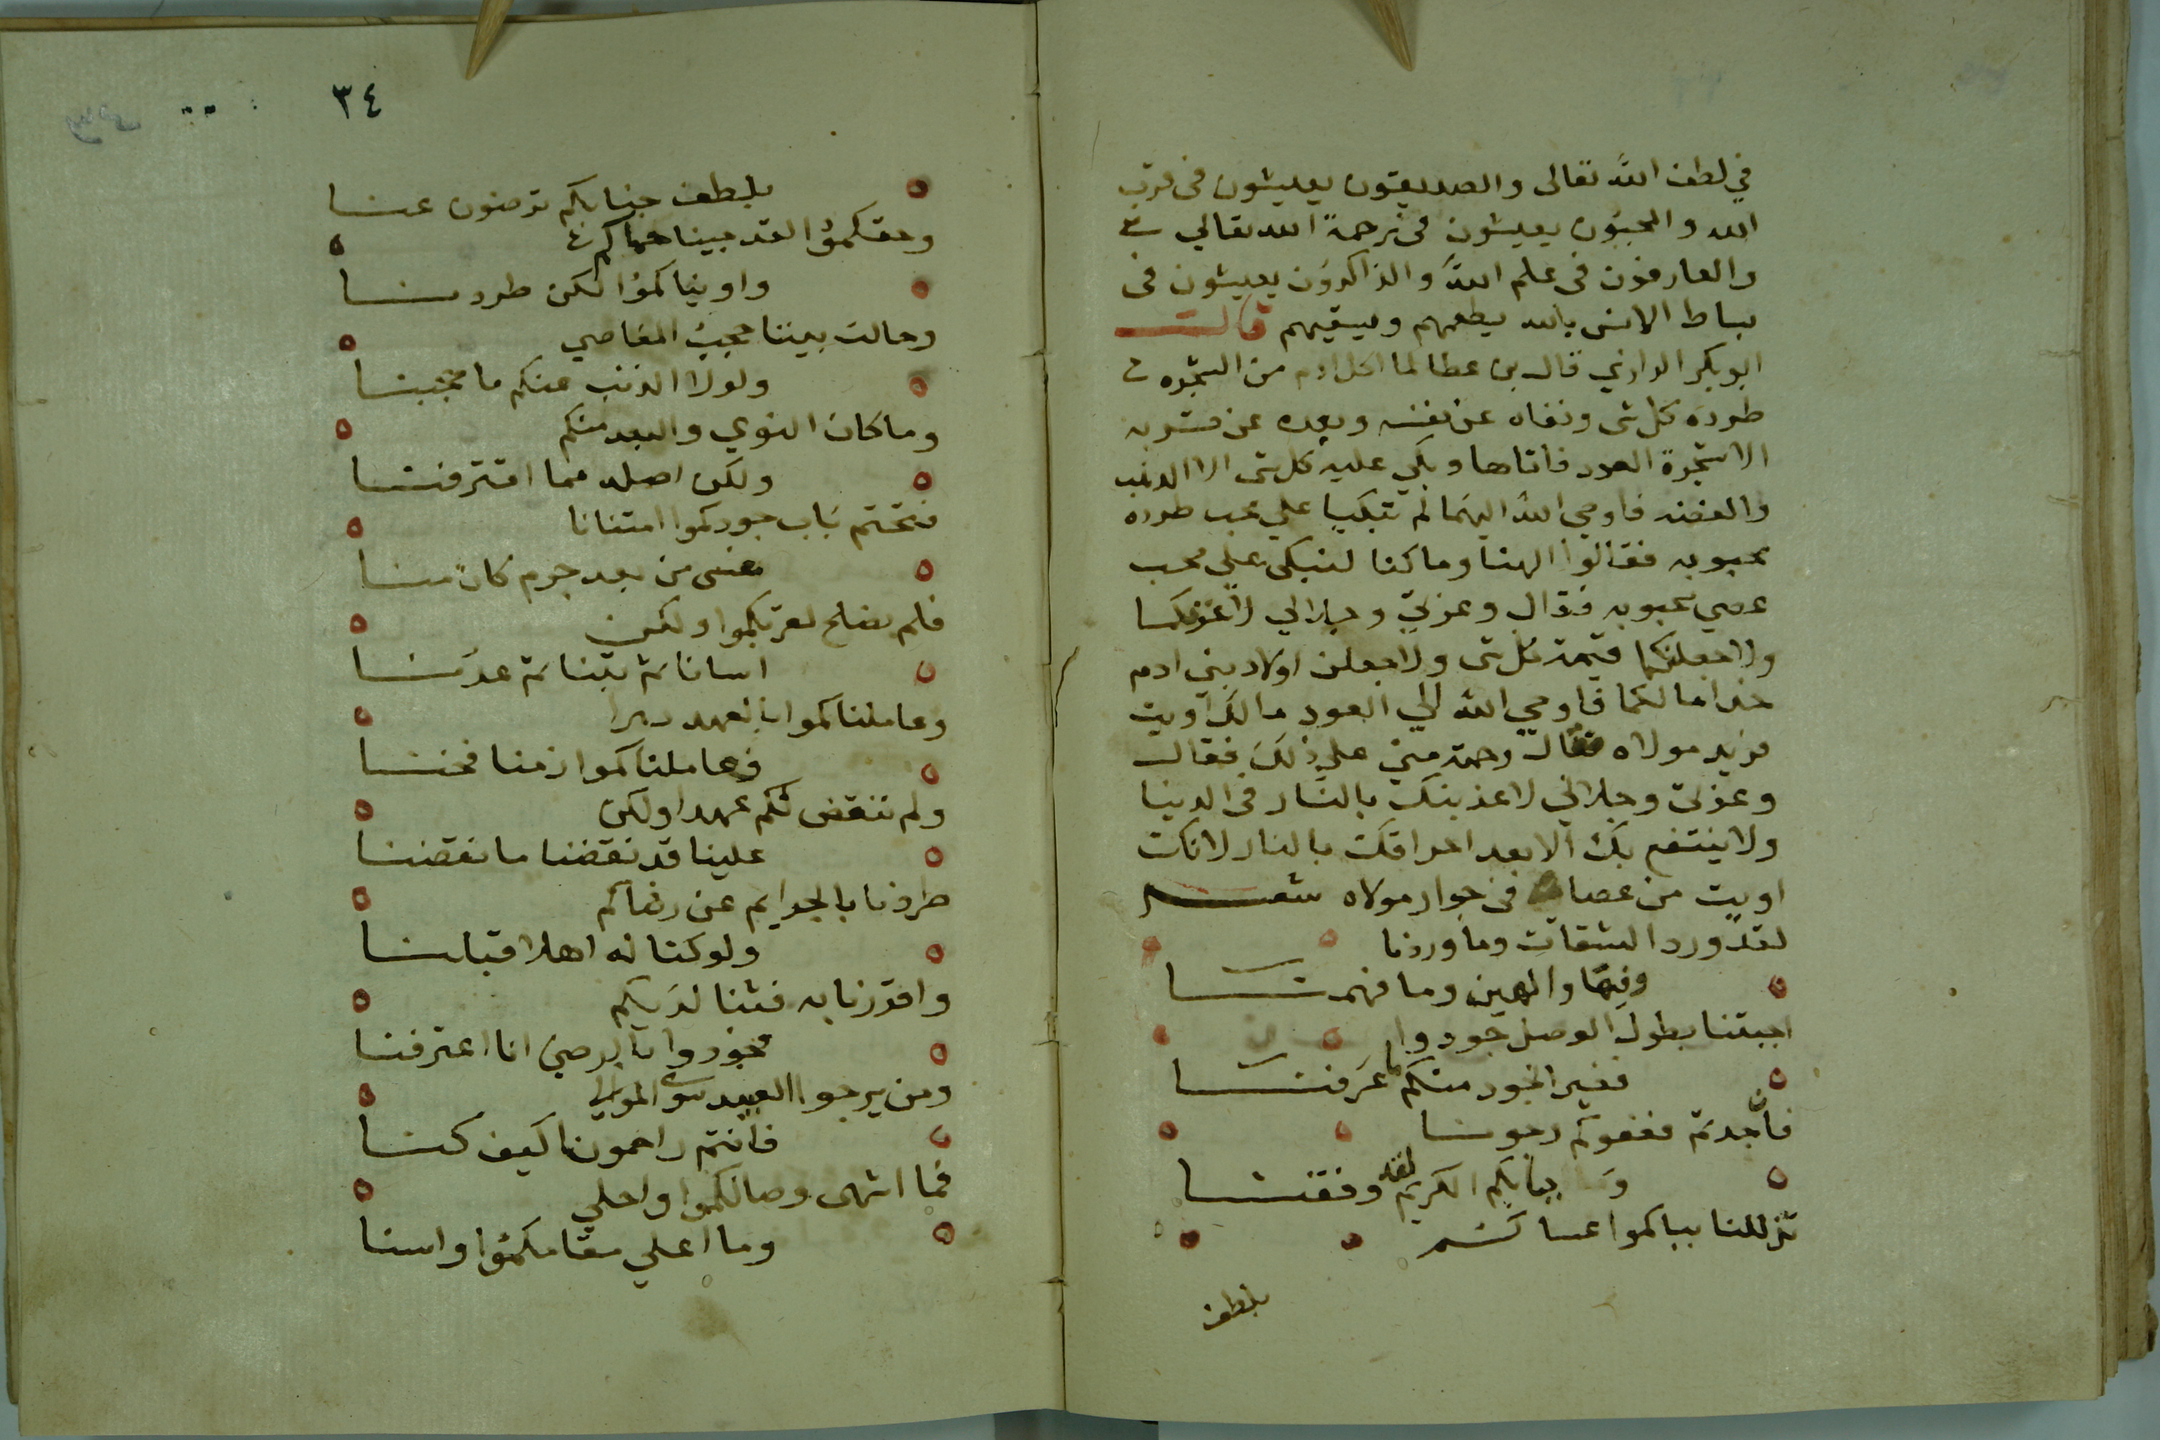 في لطف الله تعالى والصديقون يعيشون في قرب
الله والمحبون يعيشون في رحمة الله تعالي
والعارفون في علم الله والذاكرون يعيشون في
بساط الانس بالله يطعمهم ويسقيهم قالـــت
ابو بكر الداراني قال بن عطا لما اكل ادم من الشجره
طرده كل شي ونفاه عن نفسه وبعده عن قربه
الا شجرة العود فاتاها وبكي عليه كل شي الا الذهب
والفضه فاوحي الله اليهما لم تبكيا علي محب طرده
محبوبه فقالوا الهنا وما كنا لنبكي علي محب
عصي محبوبه فقال وعزتي وجلالي لاعزنكما
ولاجعلنكما قيمة كل شي ولاجعلن اولاد بني ادم
خداما لكما فاوحي الله الي العود مالك اويت
مولاه فقال رحمة مني علي ذلك فقال
وعزتي وجلالي لاعذبنك بالنار في الدنيا
ولا ينتفع بك الا بعد احراقك بالنار لانك
اويت من عصا في جوار مولاه شعـــر
لقد ورد الثقات وما وردنا
وما فهمنـــا
احبتنا بطول الوصل جودوا
فغير الجود منكم ما عرفنـــا
فعفوكم رجونـــا
جنابكم الكريم لقد وقفنـــا
تذللنا ببابكموا عساكـــم
بلطف
٣٤
بلطف جنابكم ترضون عنـــا
وحقكموا لقد جينا حماكم
واوينا كموا لكن طردنـــا
وحالت بيننا حجب المعاصي
ولولا الذنب عنكم ما حجبنـــا
وما كان النوي والبعد منكم
ولكن اصله مما اقترفنـــا
فتحتم باب جودكموا امتنانا
عسي من بعد جرم كان منـــا
فلم نصلح لقربكموا ولكن
اسانا ثم تبنا ثم عدنـــا
وعاملناكموا بالعهد دهرا
وعاملناكموا زمنا فخنـــا
ولم ننقض لكم عهدا ولكن
علينا قد نقضنا ما نقضنـــا
طردنا بالجرايم عن رضاكم
ولو كنا له اهلا قبلنـــا
واقررنا به فتنا لديكم
فجودوا بالرضي انا اعترفنـا
ومن يرجوا العبيد سوي الموالي
فانتم راحمونا كيف كنـــا
فما اشهى وصالكموا واحلي
وما اعلي مقامكموا واسنا